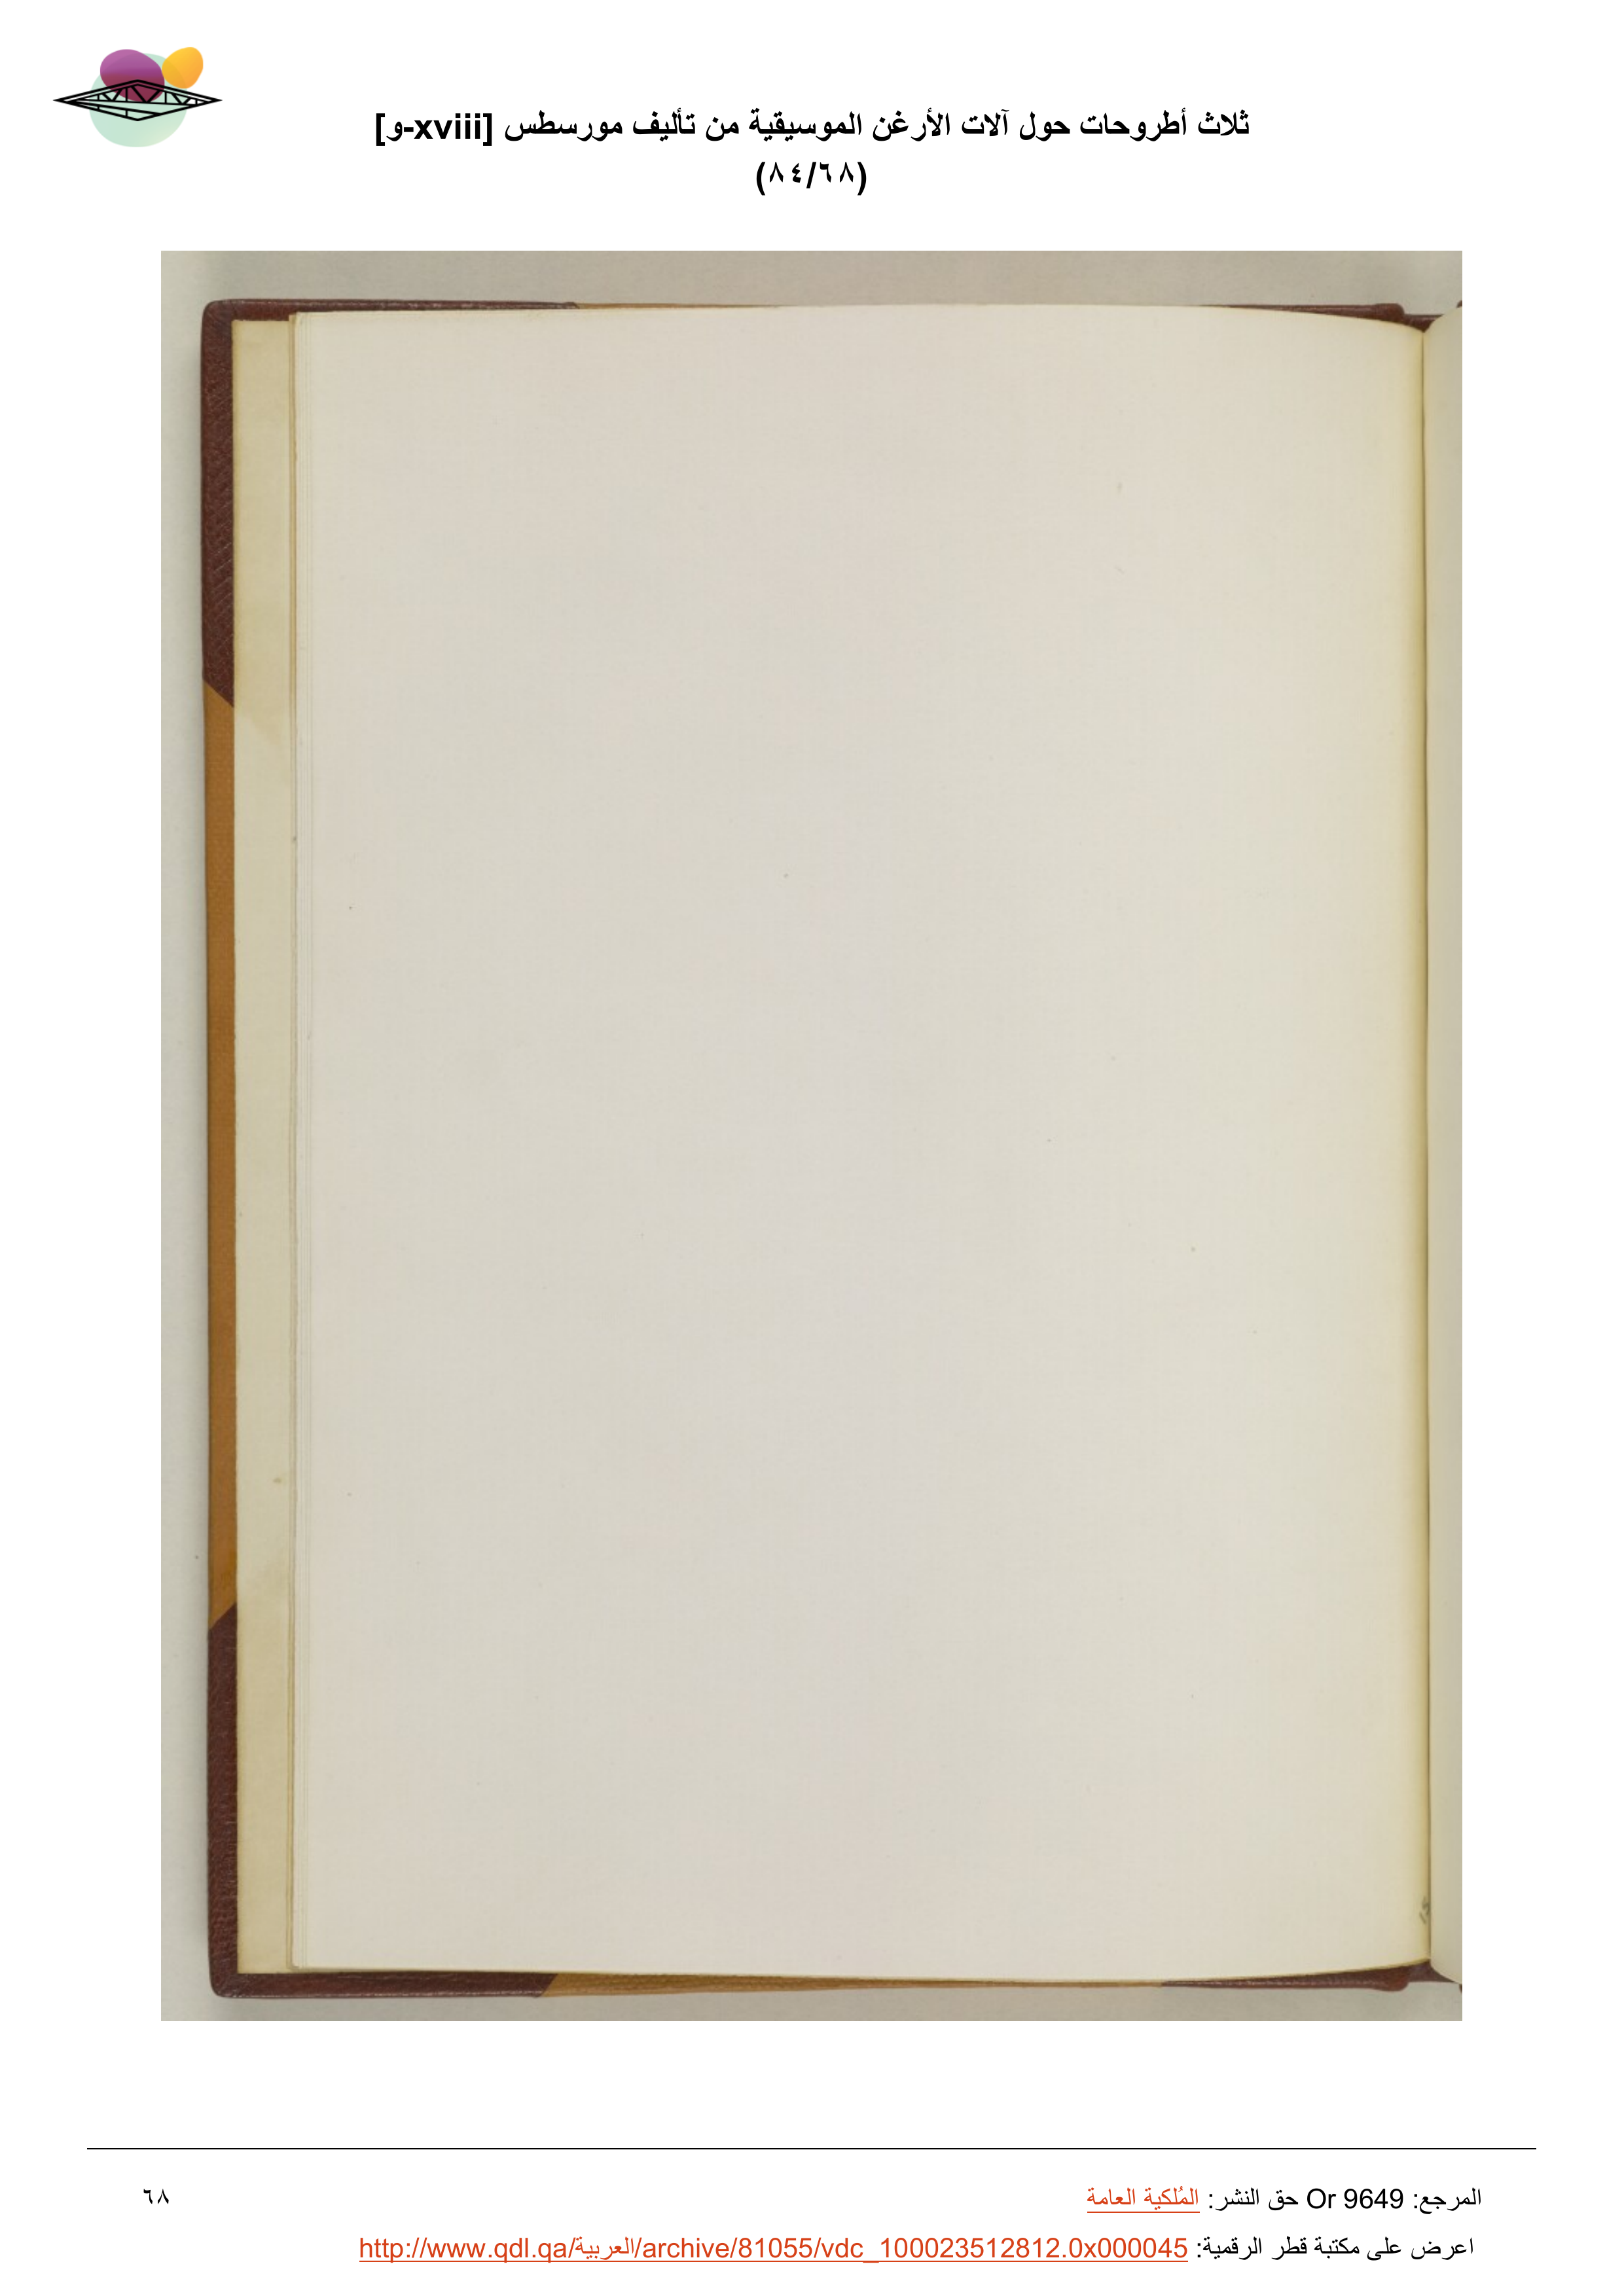 ثلاث أطروحات حول آلات الأرغن الموسيقية من تأليف مورسطس [xviii-و]
(٨٤/٦٨)
المرجع: Or 9649 حق النشر: المُلكية العامة
٦٨
اعرض على مكتبة قطر الرقمية: http://www.qdl.qa/العربية/archive/81055/vdc_100023512812.0x000045